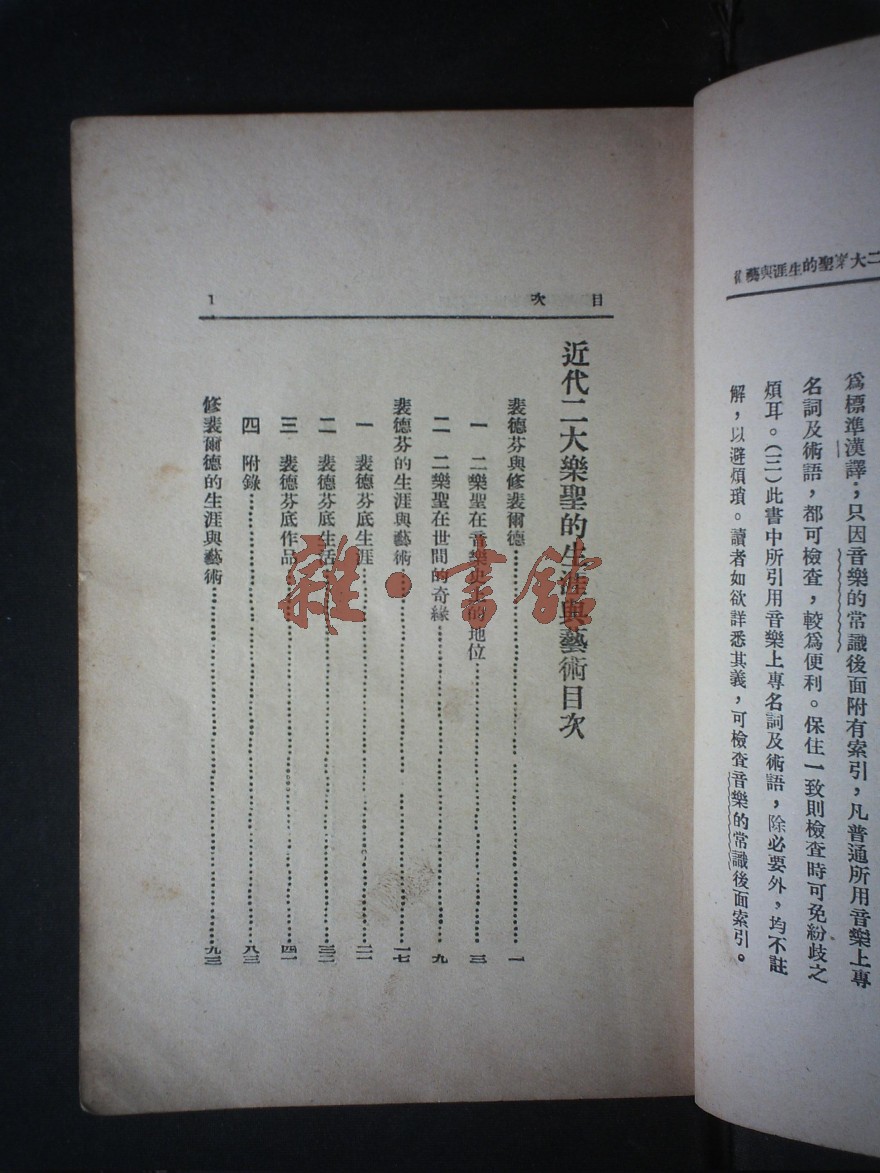 二大樂聖的生涯與藝術
爲標準漢譯；只因音樂的常識後面附有索引，凡普通所用音樂上專
名詞及術語，都可檢查，較爲便利。保住一致則檢查時可免紛歧之
煩耳。(三)此書中所引用音樂上專名詞及術語，除必要外，均不註
解，以避煩瑣。讀者如欲詳悉其義，可檢查音樂的常識後面索引。
目次 1
近代二大樂聖的生涯與藝術目次
裴德芬與修裴爾德……一
一 二樂聖在音樂史上的地位……三
二 二樂聖在世間的奇緣……九
裴德芬的生涯與藝術……一七
一 裴德芬底生涯……二一
二 裴德芬底生活……三二
三 裴德芬底作品……四一
四 附錄……八三
修裴爾德的生涯與藝術……九三
雜·書館